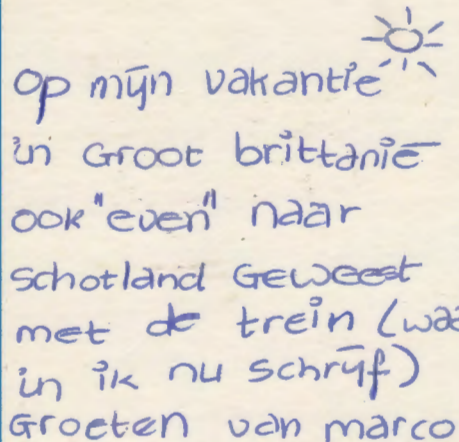 op mijn vakantie
in Groot brittanië
ook "even" naar
schotland Geweest
met de trein (waa
in ik nu schrijf)
Groeten van marco